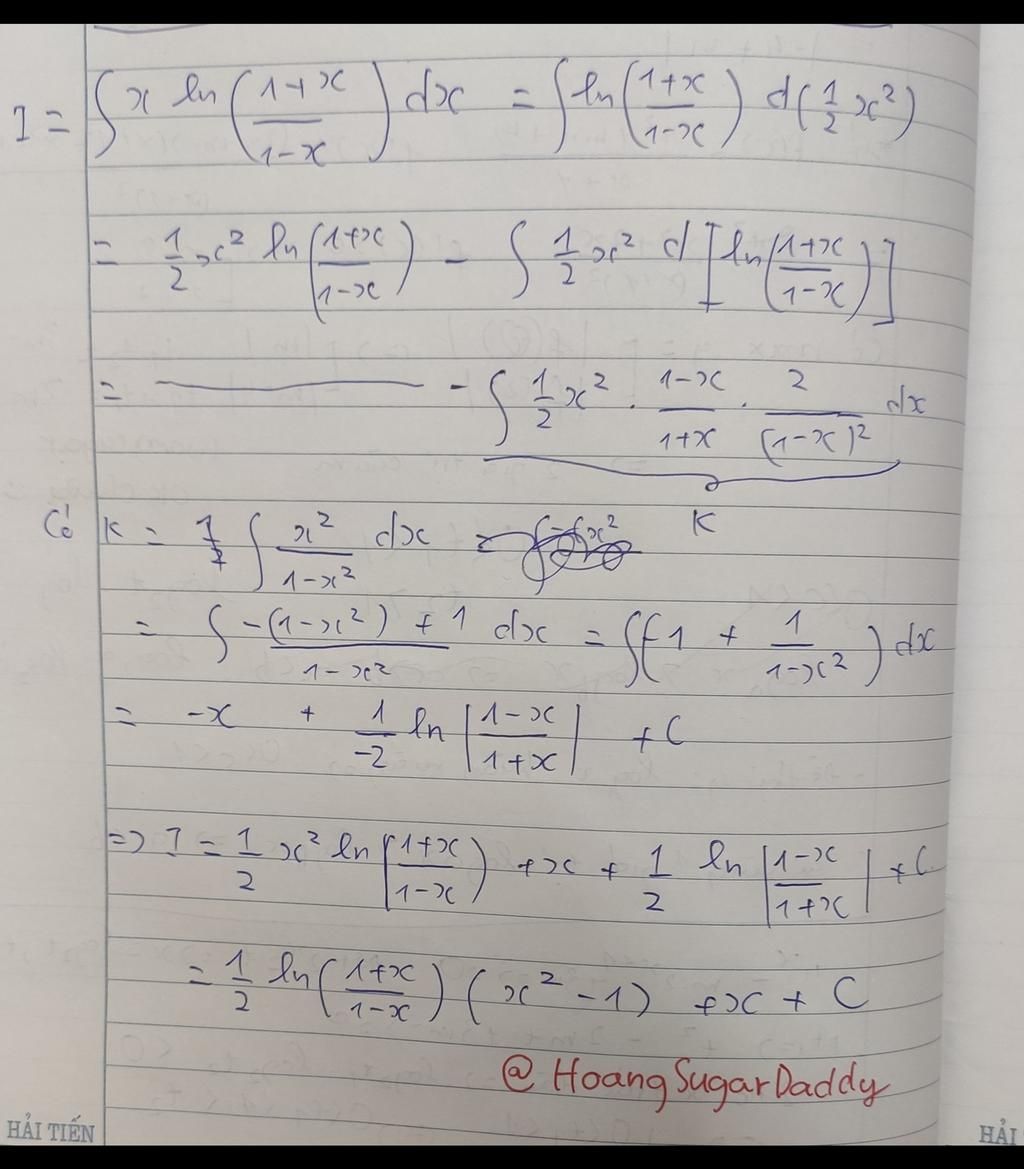 I = ∫ x ln((1+x)/(1-x)) dx = ∫ ln((1+x)/(1-x)) d(1/2 x²)
= 1/2 x² ln((1+x)/(1-x)) - ∫ 1/2 x² d[ln((1+x)/(1-x))]
= ——— - ∫ 1/2 x² . (1-x)/(1+x) . 2/(1-x)² dx
K
Có K = ∫ x²/(1-x²) dx =
= ∫ (-(1-x²) + 1)/(1-x²) dx = ∫(-1 + 1/(1-x²)) dx
= -x + 1/-2 ln|(1-x)/(1+x)| + C
=> I = 1/2 x² ln|(1+x)/(1-x)) + x + 1/2 ln|(1-x)/(1+x)| + C
= 1/2 ln((1+x)/(1-x)) (x² - 1) + x + C
@HoangSugarDaddy
HẢI TIẾN
HẢI